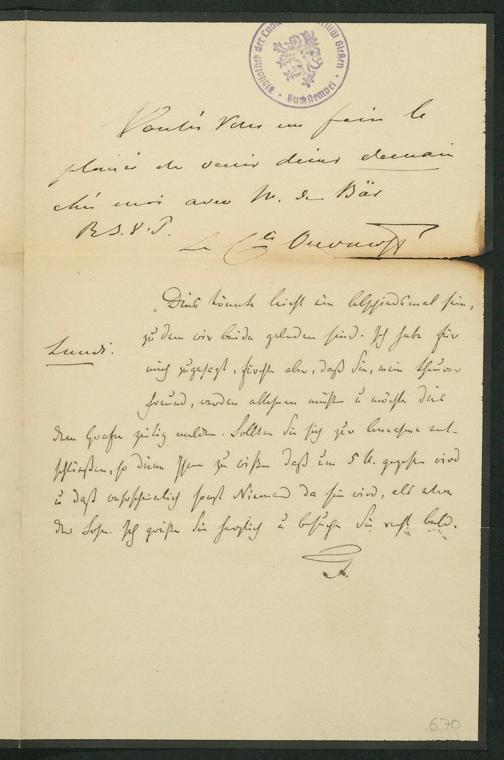 Bibliothek der Ludwigs-Universität Gießen
Buchstempel
Voulés Vous me fair le
plaisir de venir diner demain
chés moi avec Mr. de Bär
R.S.V.P.
Le Cte
Dies könnte leicht ein Abschiedsmal sein,
zu dem wir beide geladen sind. Ich habe für
Lundi.
mich zugesagt, fürchte aber, daß Sie, mein theurer
Freund, werden ablehnen müssen u möchte dies
dem Grafen zeitig melden. Sollten Sie sich zur Annahme ent-
schließen, so diene Ihnen zu wissen daß um 5 U. gegessen wird
u daß wahrscheinlich sonst Niemand da sein wird, als etwa
der Sohn. Ich grüße Sie herzlich u besuche Sie recht bald.
670